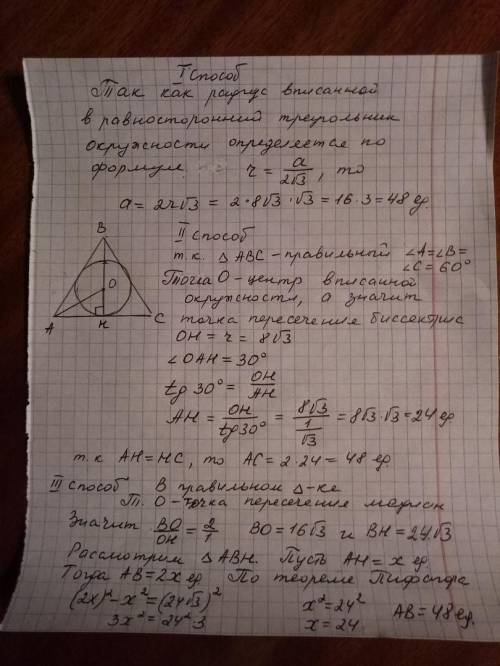 I способ
Так как радиус вписанной
в равносторонний треугольник
окружности определяется по
формуле r = a/(2√3), то
a = 2r√3 = 2·8√3·√3 = 16·3 = 48 ед.
II способ
т.к. △ABC – правильный ∠A=∠B=
∠C = 60°
Тогда O – центр вписанной
окружности, а значит
точка пересечения биссектрис
B
O
A
H
C
OH = r = 8√3
∠OAH = 30°
tg 30° = OH/AH
AH = OH/tg30° = 8√3/(1/√3) = 8√3·√3 = 24 ед
т.к AH = HC, то AC = 2·24 = 48 ед.
III способ В правильном △-ке
Т. O – точка пересечения медиан
Значит BO/OH = 2/1 BO = 16√3 и BH = 24√3
Рассмотрим △ABH. Пусть AH = x ед.
Тогда AB = 2x ед По теореме Пифагора
(2x)² – x² = (24√3)² x² = 24² AB = 48 ед.
3x² = 24²·3 x = 24